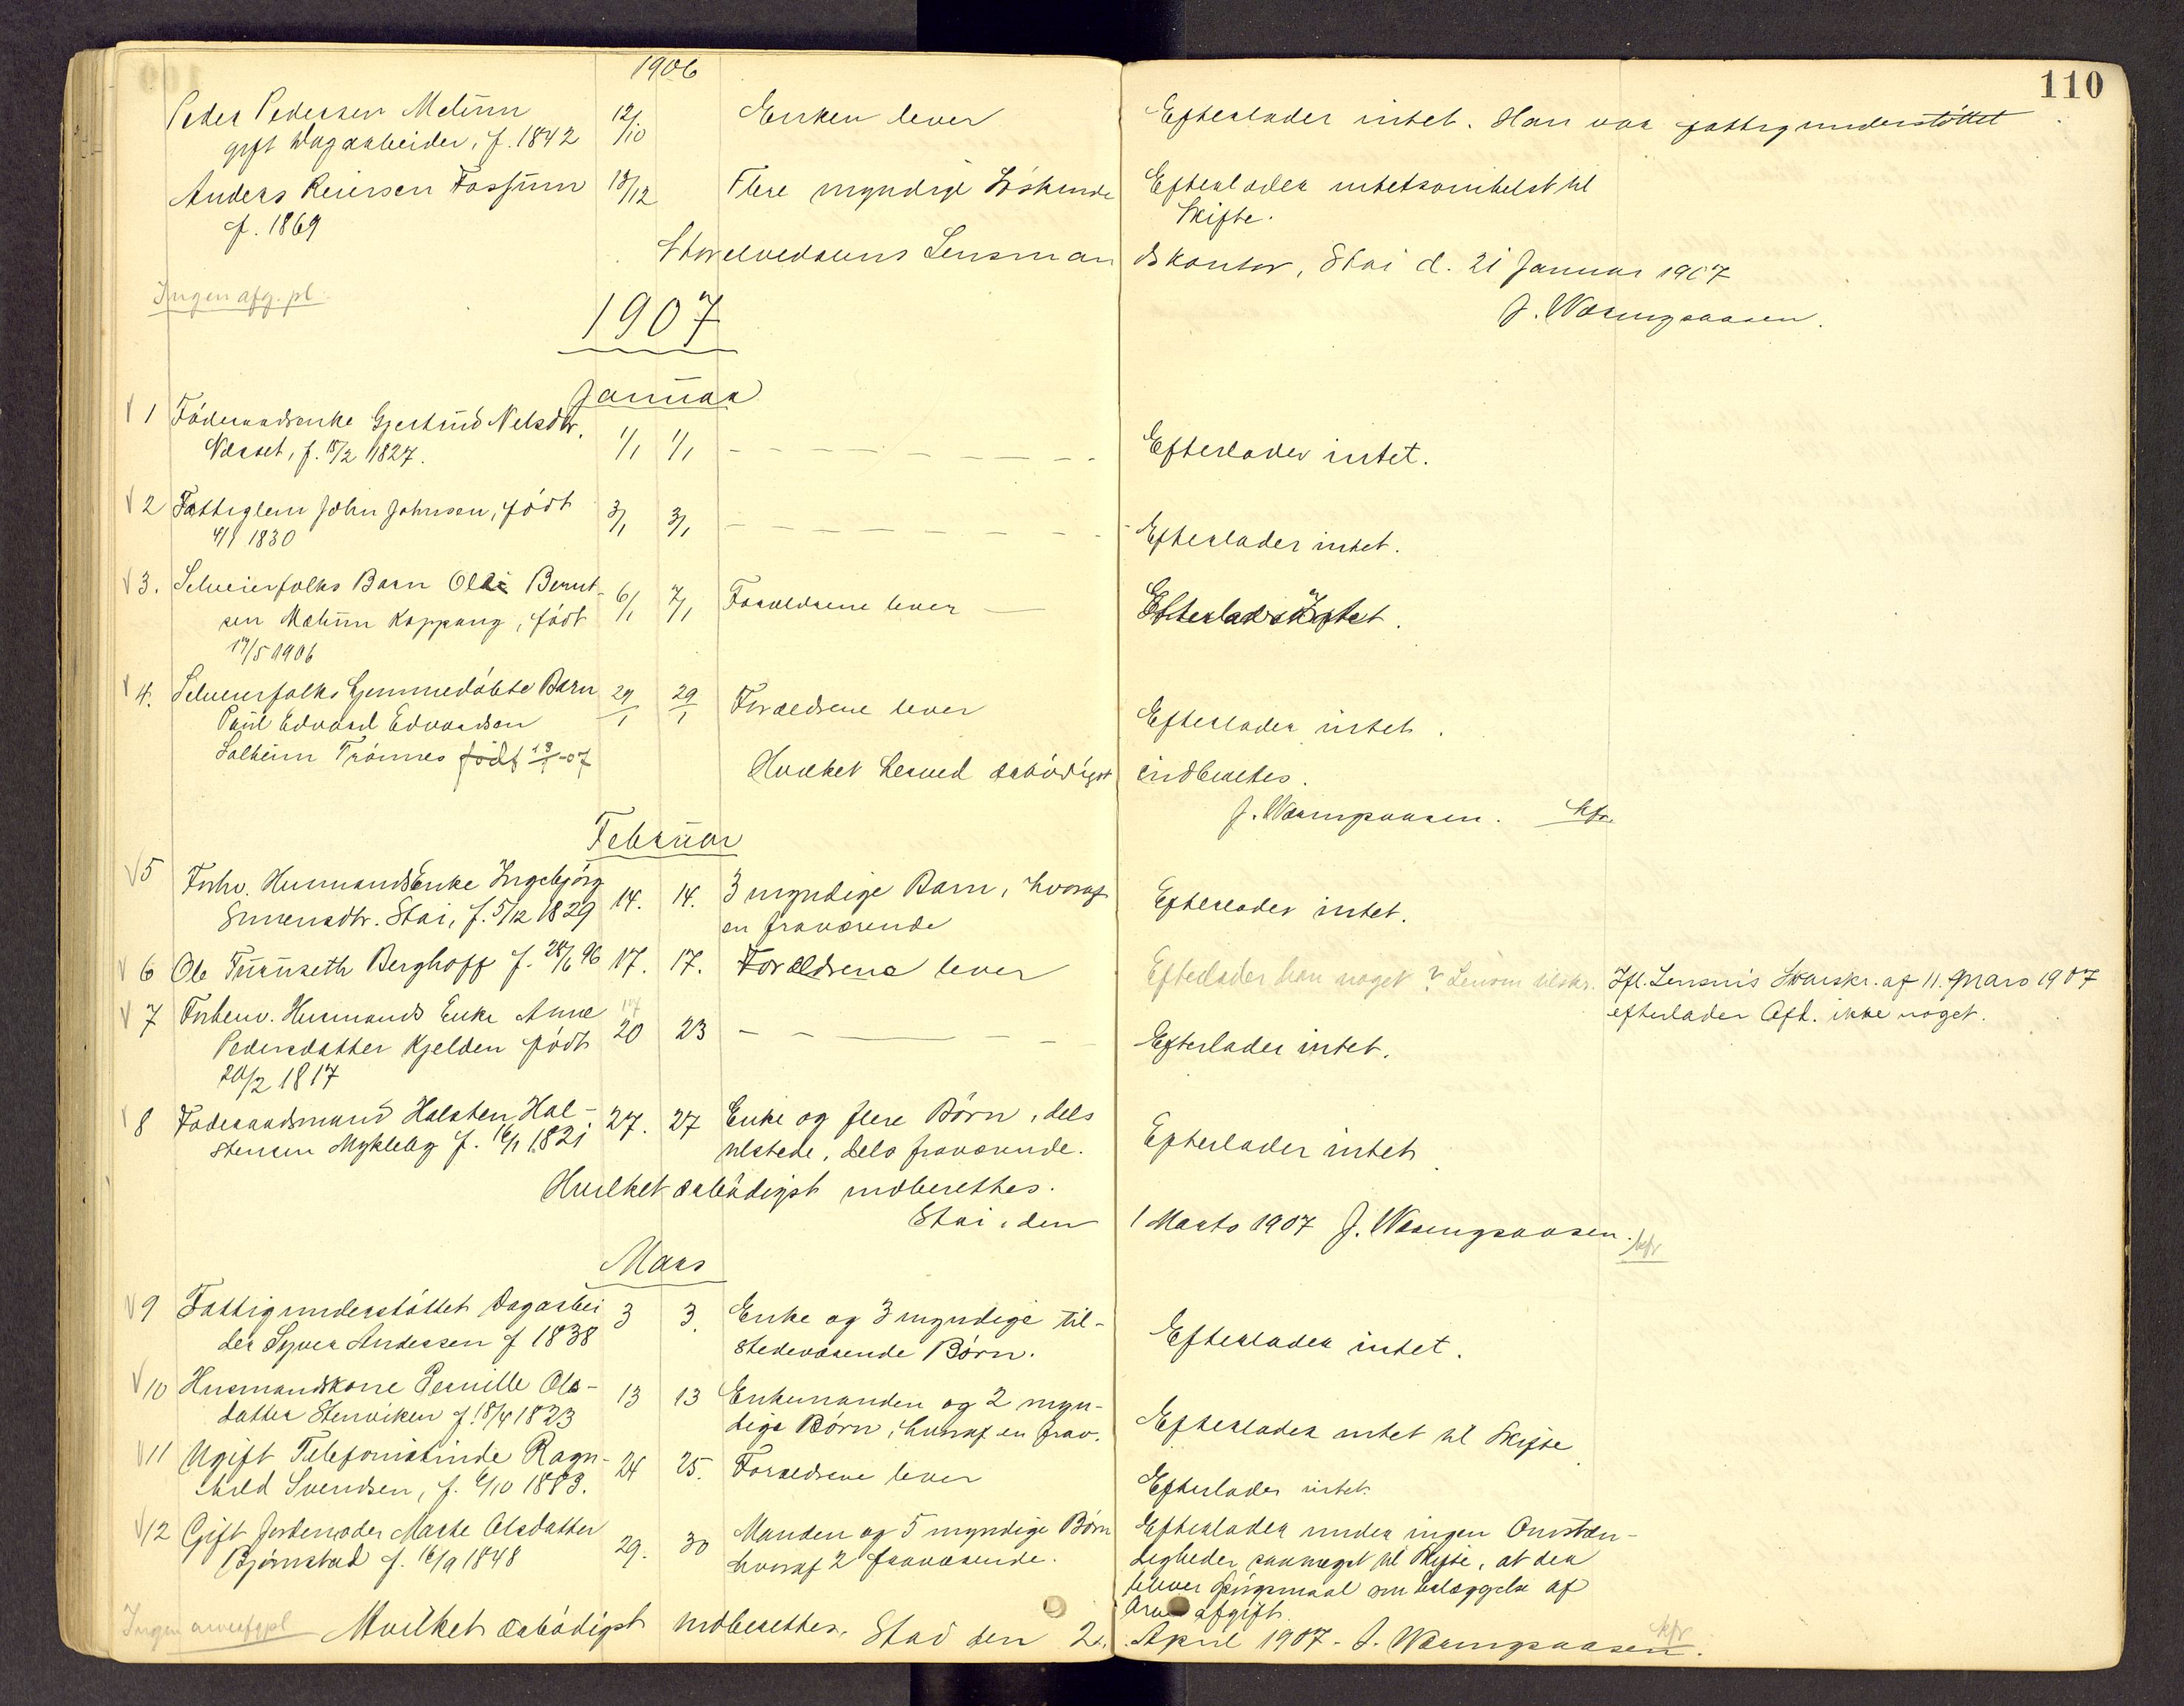 110
1906
Peder Pedersen Melüm
gift Dagarbeider, f. 1842
12/10
Enken lever
Efterlader intet. Han var fattigunderstöttet
Anders Reiersen Fossüm
f. 1869
13/12
Flere myndige Söskende
Efterlader intetsomhelst til
Skifte.
Storelvedalens Lensmandskontor, Stai d. 21 Januar 1907
J. Wæringsaasen.
Ingen afg. pl.
1907
Janüar
1 Föderaadsenke Gjertrud Nelsdtr.
Næsset, f. 15/2 1827.
1/1 1/1
Efterlader intet.
2 Fattiglem John Johnsen, födt
4/1 1830
3/1 3/1
Efterlader intet.
3. Selveierfolks Barn Olai Bernt-
sen Melüm Koppang, födt
17/5 1906
6/1 7/1 Forældrene lever
Efterlader Intet.
4. Selveierfolks hjemmedöbte Barn
Paül Edvard Edvardsen
Solheim Trönnes födt 13/1-07
29/1 29/1 Forældrene lever
Efterlader intet.
Hvilket herved ærbödigst indberettes.
J. Wæringsaasen. kfr.
Februar
5 Forhv. HusmandsEnke Ingebjörg
Simensdtr. Stai, f. 5/12 1829
14. 14. 3 myndige Barn, hvoraf
en fraværende
Efterlader intet.
6 Ole Tüüseth Berghoff f. 28/6 96 17. 17. Forældrene lever
Efterlader han noget? Lensm tilskr.
Ifl. Lensm's Svarskr. af 11. Mars 1907
efterlader Afd. ikke noget.
7 Forhenv. Husmands Enke Anne
Pedersdatter Kjelden födt
20/2 1817
17
20 23
Efterlader intet.
8 Föderaadsmand Halsten Hal-
stensen Mykleby f. 16/1 1821
27. 27 Enke og flere Börn, dels
tilstede, dels fraværende.
Efterlader intet
Hvilket ærbödigst indberettes.
Stai, den 1 Marts 1907 J. Wæringsaasen.
kfr
Mars
9 Fattigunderstöttet Dagarbei
der Syver Andersen f 1838
3 3. Enke og 3 myndige til-
stedeværende Börn.
Efterlader intet.
10 Husmandskone Pernille Ols-
datter Stenviken f. 18/4 1823
13 13 Enkemanden og 2 myn-
dige Börn, hvoraf en frav.
Efterlader intet til Skifte
11 Ugift Telefonistinde Ragn-
hild Svendsen, f. 6/10 1883.
24 25. Forældrene lever
Efterlader intet
12 Gift Jordemoder Marte Olsdatter
Bjørnstad f. 16/9 1848
29. 30 Manden og 5 myndige Börn
hvoraf 2 fraværende.
Efterlader under ingen Omstæn-
digheder saameget til Skifte, at der
bliver Spörgsmaal om Erlæggelse af
Arveafgift.
Ingen arveafgpl
Hvilket ærbödigst indberettes. Stai den 2. April 1907 - J. Wæringsaasen.
kfr